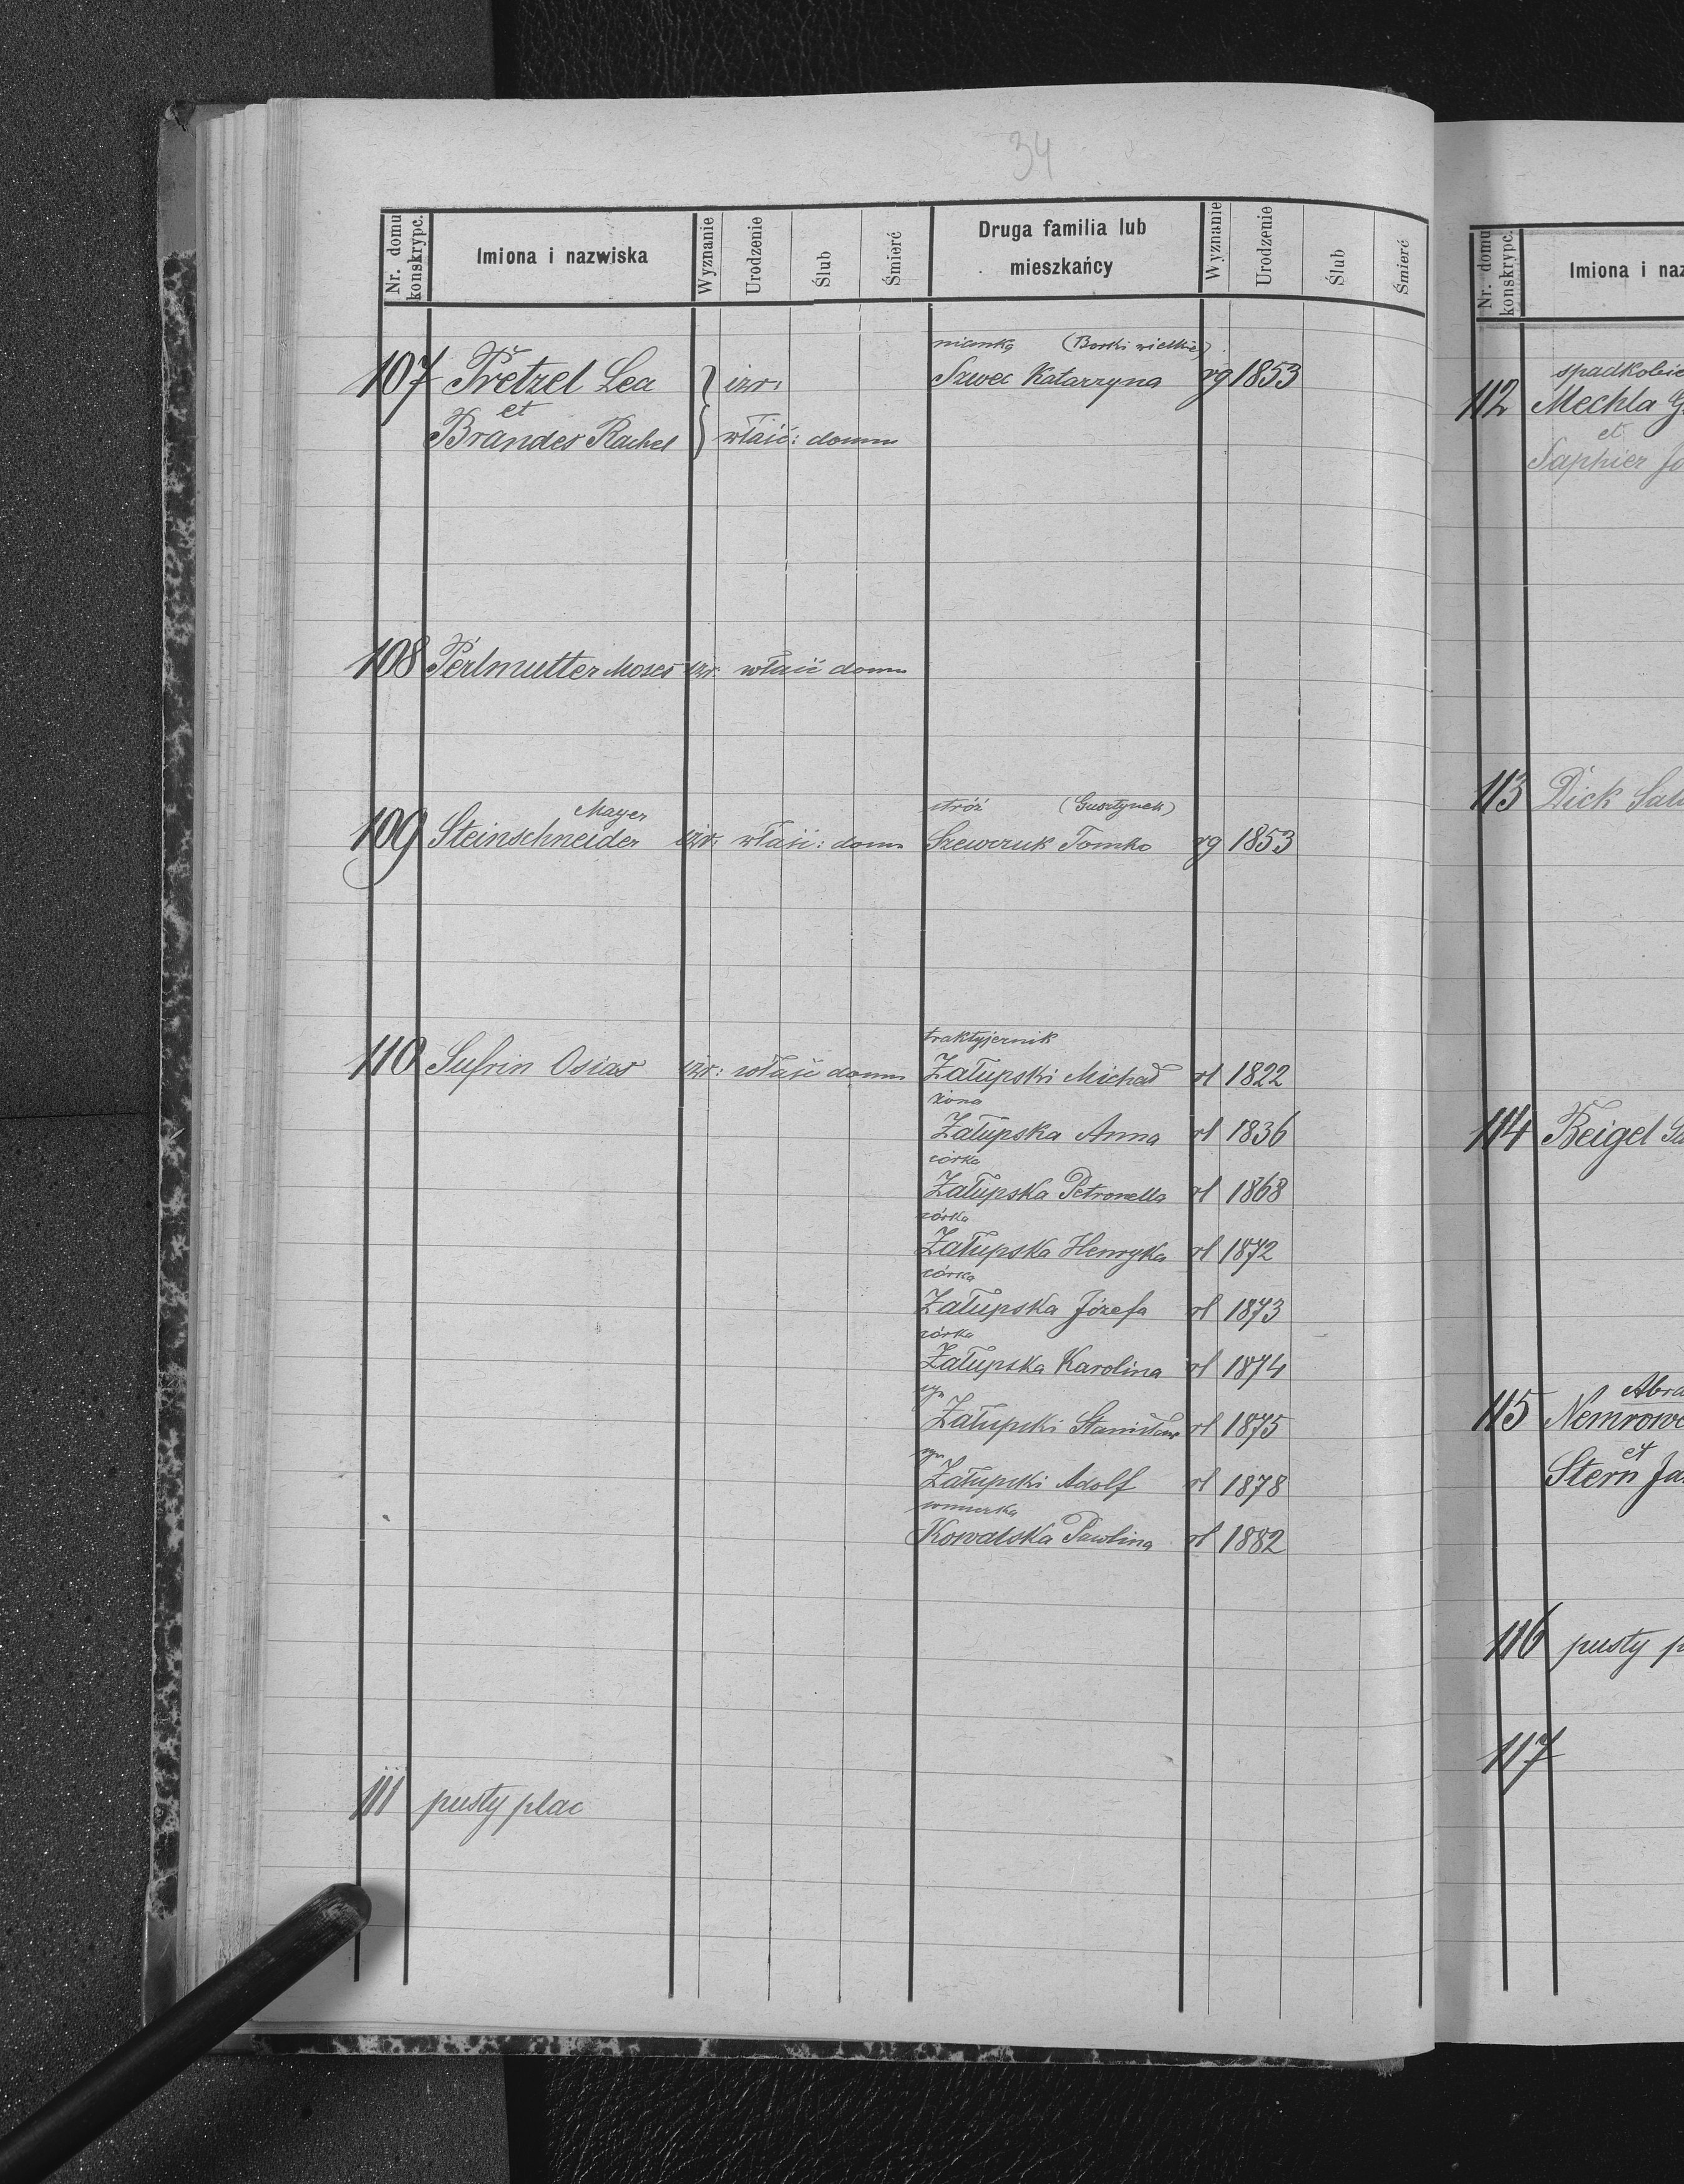 34
Nr. domu konskrypc. Imiona i nazwiska Wyznanie Urodzenie Ślub Śmierć Druga familia lub mieszkańcy Wyznanie Urodzenie Ślub Śmierć
nianka (Borki wielkie)
107 Pretzel Lea izr: Szwec Katarzyna rg 1853
et
Brandes Rachel właść: domu
108 Perlmutter Moses izr. właść domu
Mayer stróż (Gusztynek)
109 Steinschneider izr: właść: domu Szewczuk Tomko rg 1853
traktyjernik
110 Sufrin Osias izr: właść domu Załupski Michał rł 1822
żona
Załupska Anna rł 1836
córka
Załupska Petronella rł 1868
córka
Załupska Henryka rł 1872
córka
Załupska Józefa rł 1873
córka
Załupska Karolina rł 1874
syn
Załupski Stanisław rł 1875
syn
Załupski Adolf rł 1878
Kowalska Pawlina rł 1882
111 pusty plac
Nr. domu konskrypc. Imiona i naz
spadkobie
112 Mechla G
et
Saphier Jo
113 Dick Sal
114 Beigel Sa
Abra
115 Nemrowe
et
Stern Ja
116 pusty p
117